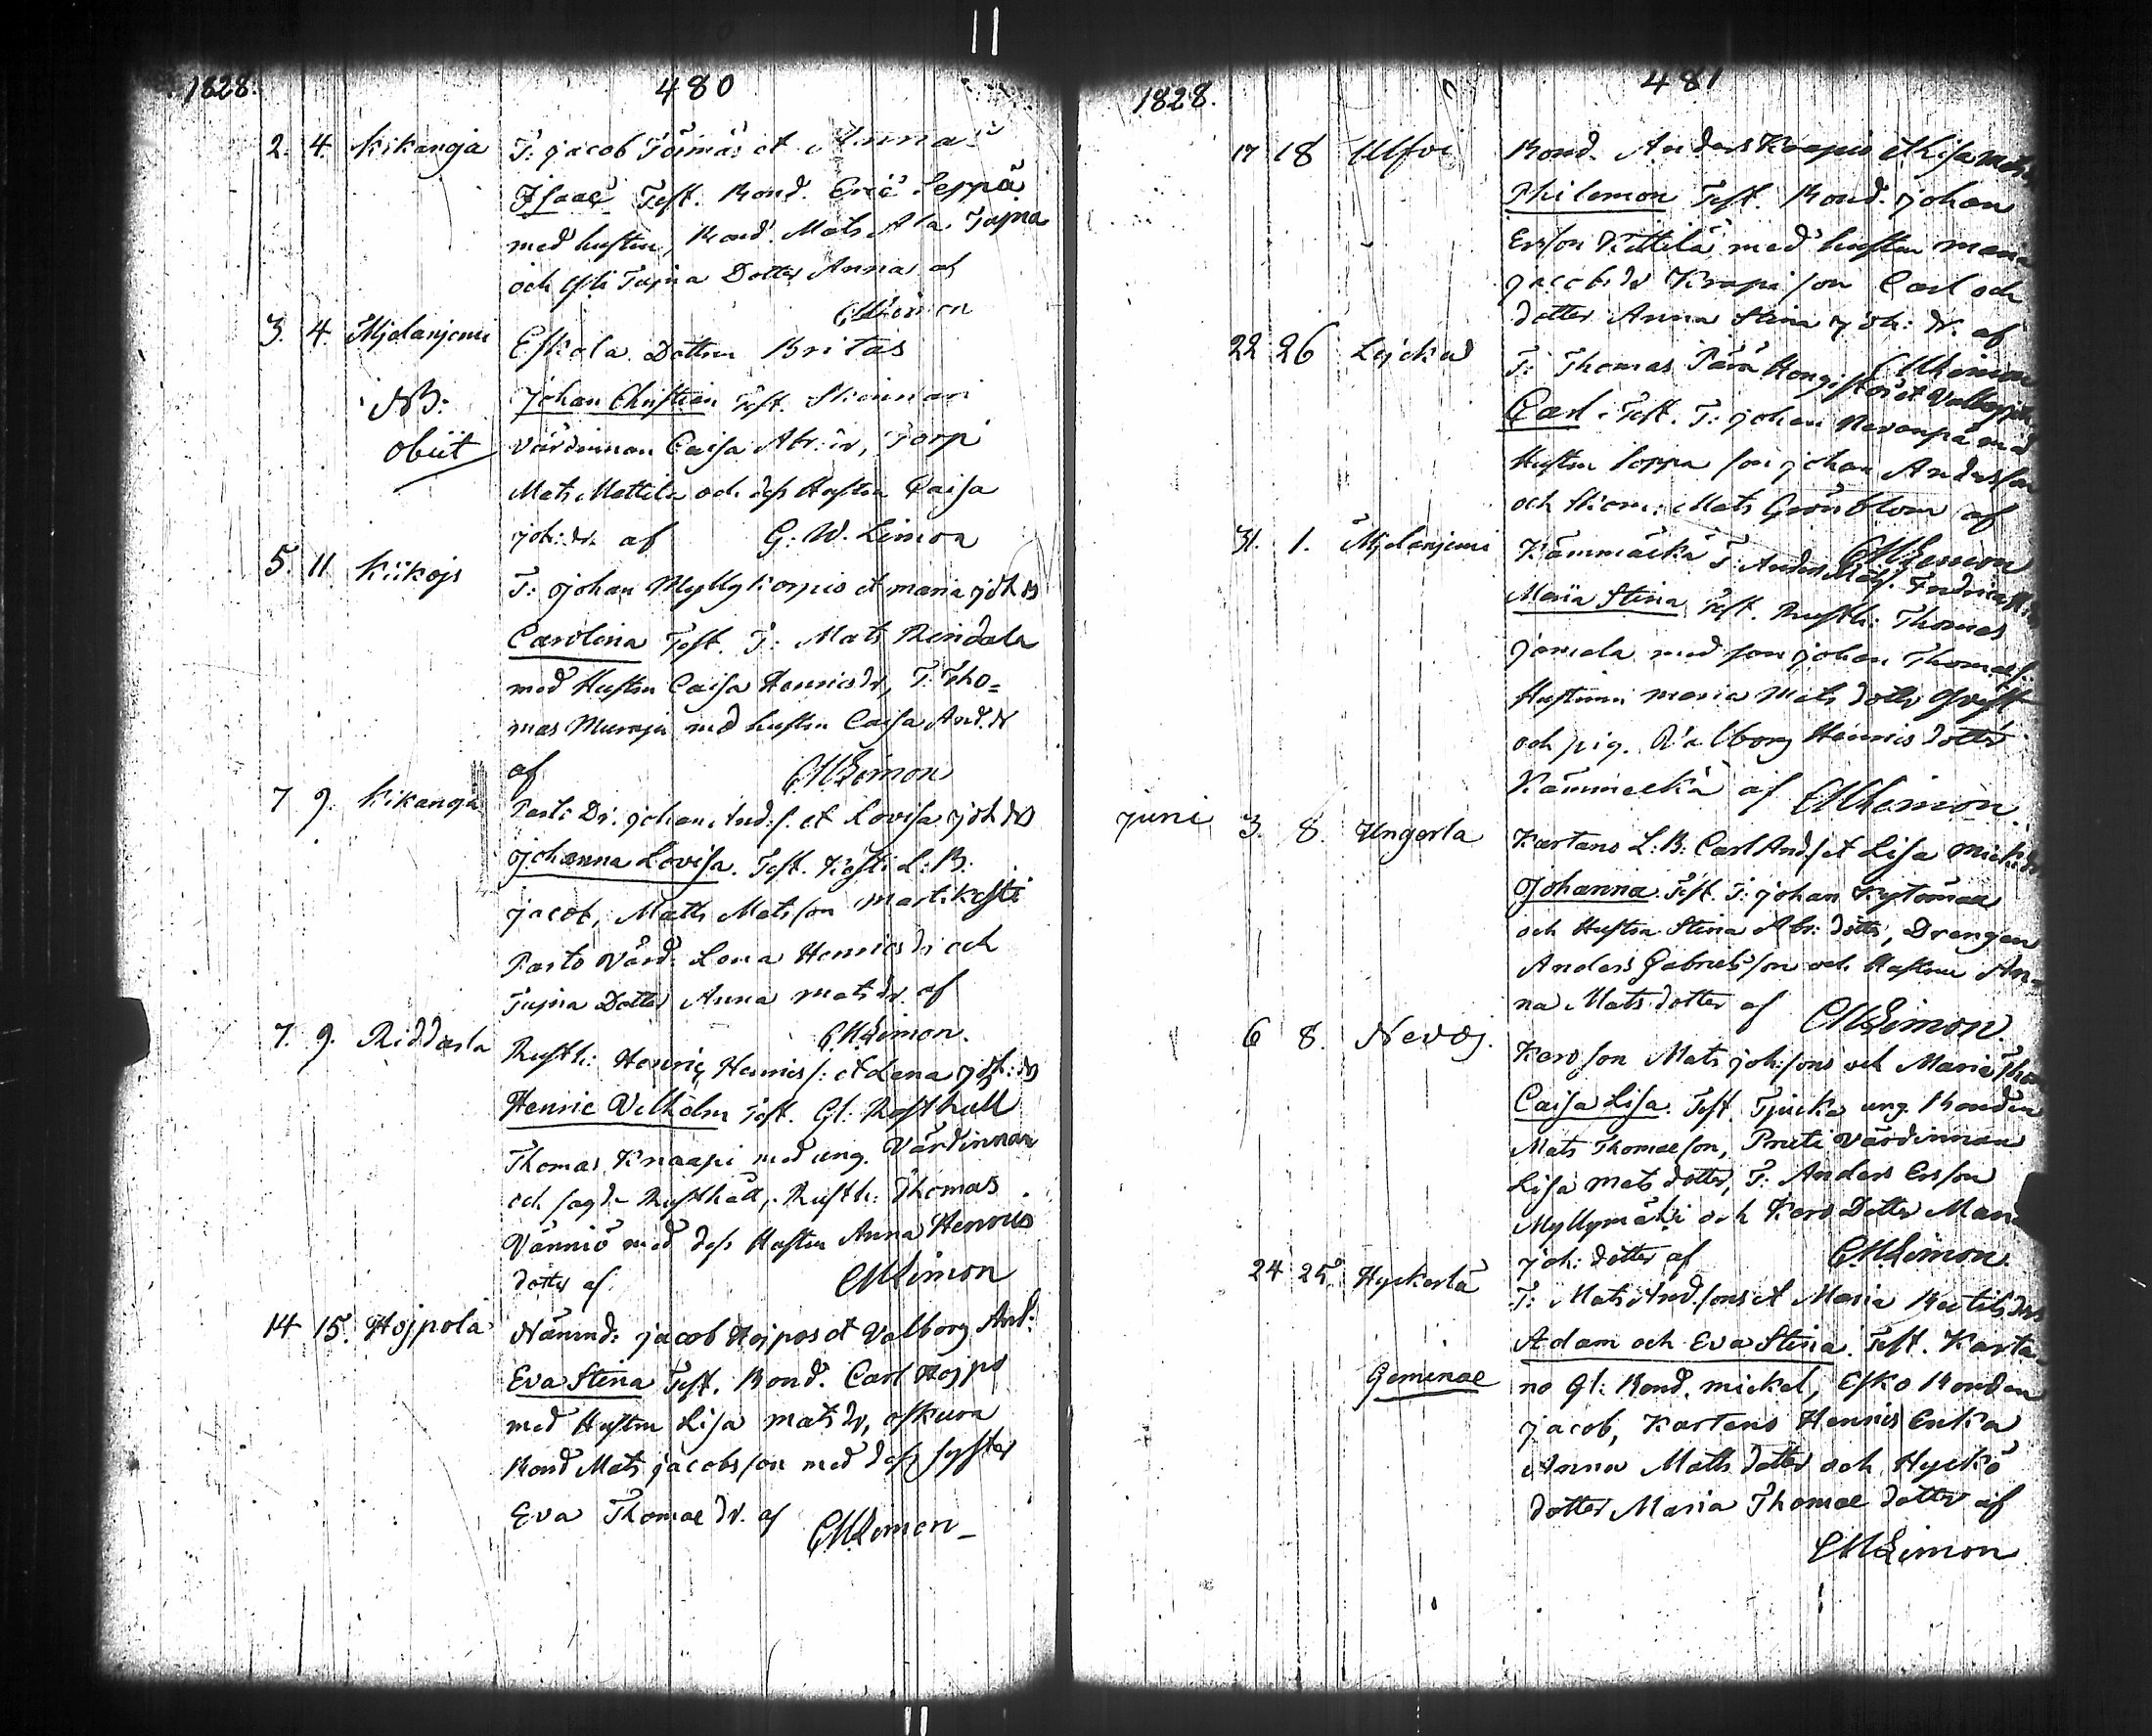 1828. 480
2. 4. Kikanoja T: Jacob Töimäs et Anna
Isaac Test. Bond. Eric Leppä
med hustru, Bond. Mats Ala Tupna
och Tupna Dotter Anna af
GWLimon
3. 4. Mjolanjemi Eskola Dottern Britas
NB: Johan Christian Test. Skinnari
obiit värdinnan Caisa Abr: dr, Torp
Mats Mattila och dess Hustru Caisa
joh: dr. af G. W. Limon
5. 11. Kiikojs T: Johan Myllykorpis et Maria joh ds
Carolina Test. T: Mats Rindala
med Hustru Caisa Henricsdr, T. Tho=
mas Muraja med hustru Caisa And. dr
af GWLimon
7 9. Kikanoja Pasti Dr. Johan And:s. et Lovisa joh drs
Johanna Lovisa. Test. Kesti L: B.
Jacob, Matts Matsson Martikesti
Pasto Värd. Lena Henricsdr och
Tupna Dotter Anna Mats dr. af
GWLimon.
7. 9. Riddarla Rusth: Henric Henrics: et Lena joh: ds
Henric Wilhelm Test. Gl. Rusthåll
Thomas Knaapi med ung. Värdinnan
och sagde Rusthåll, Rusth: Thomas
Vänniö med dess Hustru Anna Henrics
dotter af GWLimon
14 15. Hojpola Nämnd: Jacob Hojpos et Valborg And:
Eva Stina Test. Bond. Carl Hojpo
med Hustru Lisa Mats dr, Eskura
Bond Mats Jacobsson med dess syster
Eva Thomae dr. af GWLimon
1828. 481
17 18 Ulfvi Bond. Anders Knapis et Lisa Mats
Philemon Test. Bond. Johan
Ersson Kittilä med hustru Maria
Jacobsdr Knapi son Carl och
dotter Anna Stina joh: dr. af
GWLimon
22 26 Lyckas T: Thomas Pärä Hongistos et Valborg
Carl. Test. T: Johan Nevanpä med
Hustru Soppa son Johan Andersson
och Skom: Mats Grönblom af
GWLimon
31. 1. Mjolanjemi Kämmäckä T: Anders Mats: Fredrica
Maria Stina Test. Rusth: Thomas
Jamela med son Johan Thomass:
Hustrun Maria Mats dotter Qvist
och pig. Valborg Henrics dotter
Kämmeckä af GWLimon.
Juni 3. 8. Ungerla Kartano L: B: Carl Ands et Lisa Mich: dr
Johanna Test. T: Johan Kytömaa
och Hustru Stina Abr: dotter, Drengen
Anders Gabrielsson och Hustru An=
na Mats dotter af GWLimon.
6 8. Nevoj. Kero son Mats joh:sons och Maria Tho
Caisa Lisa. Test. Tjucka ung. Bonden
Mats Thomaeson, Pruti Värdinnan
Lisa Mats dotter, T: Anders Ersson
Myllymäki och Kero Dotter Maria
joh: dotter af GWLimon.
24 25. Hyckerlä T: Mats And.sons et Maria Bertils drs
Adam och Eva Stina. Test. Karta=
Geminae no Gl: Bond. Mickel, Esko Bonden
Jacob, Kartano Henrics Enka
Anna Matts dotter och Hyckö
dotter Maria Thomae dotter af
GWLimon